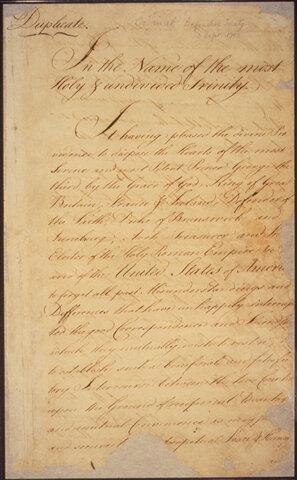 Duplicate.
Original Definitive Treaty
Sept. 1783
In the Name of the most
Holy & undivided Trinity.
It having pleased the divine Pro
vidence to dispose the Hearts of the most
Serene and most Potent Prince George the
third, by the Grace of God, King of Great
Britain, France & Ireland, Defender of
the Faith, Duke of Brunswick and
Lunebourg, Arch Treasurer and
Elector of the Holy Roman Empire &c.
and of the United States of America
to forget all past Misunderstandings and
Differences that have unhappily interrup
ted the good Correspondence and Friendship
which they mutually wish to restore;
to establish such a beneficial and satisfac
tory Intercourse between the two Countries
upon the Ground of reciprocal Advantages
and mutual Convenience as may
and secure perpetual Peace & Harmony